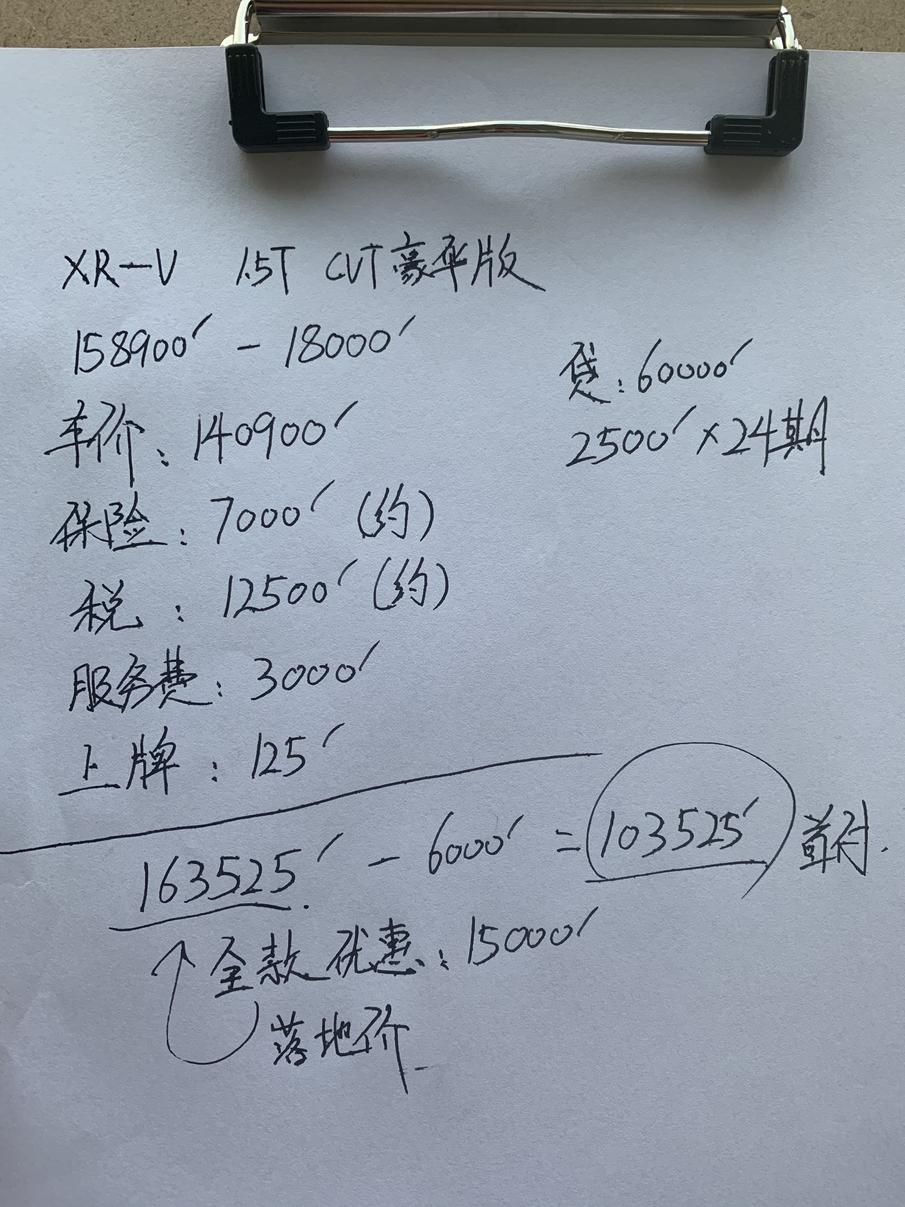 XR-V 1.5T CVT豪华版
158900′ - 18000′
车价：140900′
保险：7000′（约）
税：12500′（约）
服务费：3000′
上牌：125′
贷：60000′
2500′×24期
163525′ - 6000′ = 103525′ 首付.
全款优惠：15000′
落地价